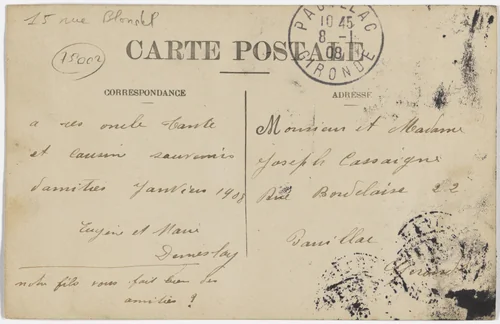 15 rue Blondel
15002
CARTE POSTALE
PAUILLAC
10 45
8 - 1
08
GIRONDE
CORRESPONDANCE
ADRESSE
a ses oncle tante
et cousin souvenirs
d'amitiés Janvier 1908
Eugène et Marie
Demeslay
notre fils vous fait bien des
amitiés
Monsieur et Madame
Joseph Cassaigne
Rue Bordelaise 22
Pauillac
Gironde